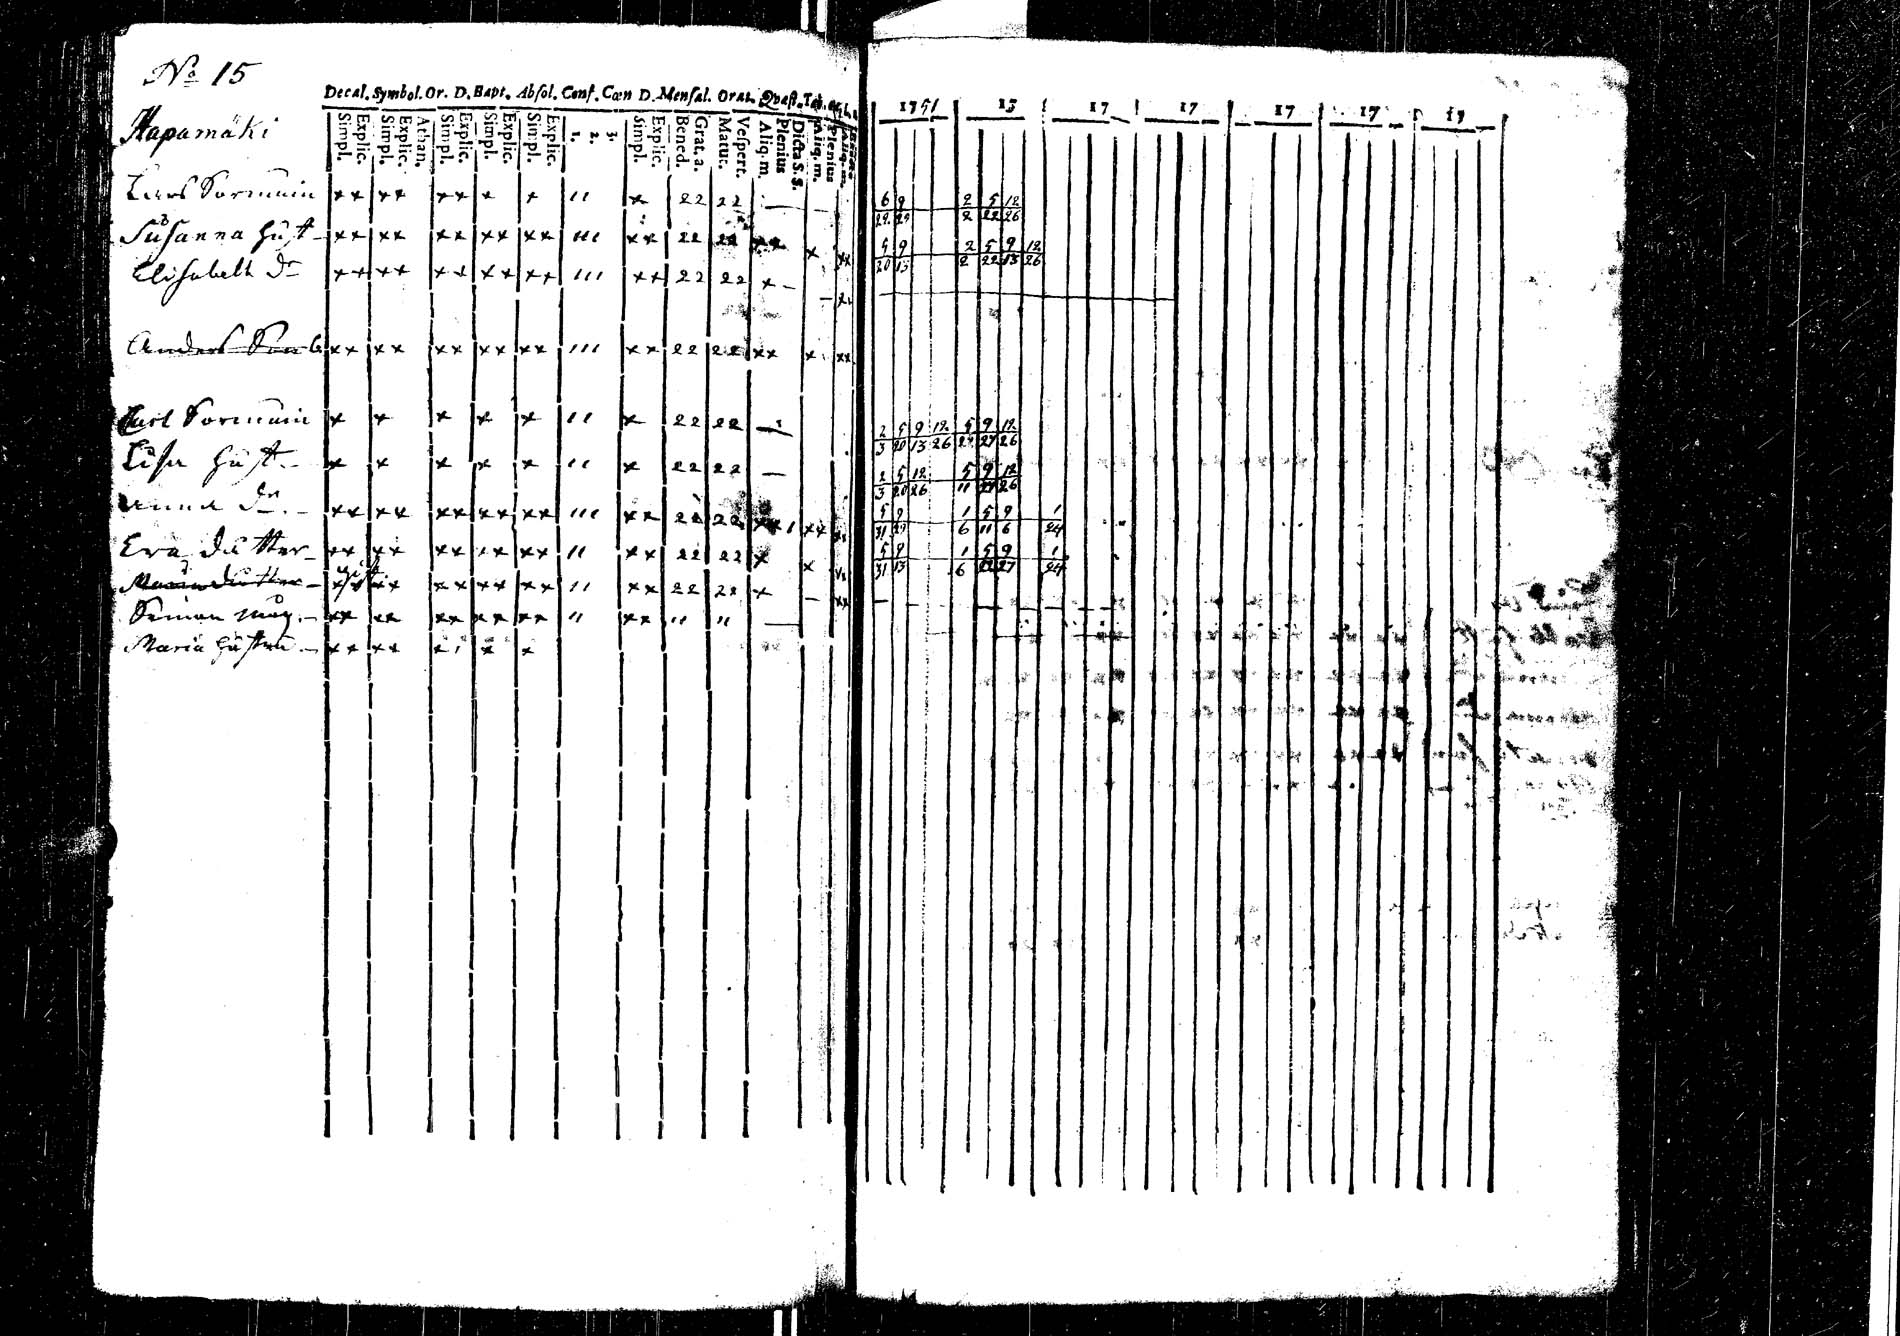 No 15
Decal. Symbol. Or. D. Bapt. Absol. Conf. Cœn D. Mensal. Orat. Quæst.
Simpl. Explic. Simpl. Explic. Athan. Simpl. Explic. Simpl. Explic. Simpl. Explic. 1. 2. 3. Simpl. Explic. Bened. Grat. a. Matut. Vespert. Aliq. m. Plenius Dicta S. S. Aliq. m. Plenius
1751 13 17 17 17 17 17
Hapamäki
Lars Sormuin xx xx xx x x 11 x 22 22 —
6 9 2 5 12
29 29 2 22 26
Susanna hust xx xx xx xx xx 111 xx 22 22 xx x xx
5 9 2 5 9 12
20 13 2 22 13 26
Elisabeth Dr xx xx xx xx xx 111 xx 22 22 x —
Anders xx xx xx xx xx 111 xx 22 22 xx x xx
Carl Sormuin x x x x x 11 x 22 22 —
2 5 9 12 5 9 12
3 20 13 26 27 26
Lisa hust x x x x x 11 x 22 22 —
2 5 12 5 9 12
3 20 26 11 27 26
Anna Dr xx xx xx xx xx 111 xx 22 22 xx xx
5 9 1 5 9 1
31 29 6 11 6 24
Eva dotter xx xx xx xx xx 11 xx 22 22 x x
5 9 1 5 9 1
31 13 6 22 27 24
Maria dotter xx xx xx xx 11 xx 22 22 x — xx
Simon mag. xx xx xx xx xx 11 xx 11 11 —
Maria hustru xx xx x x x